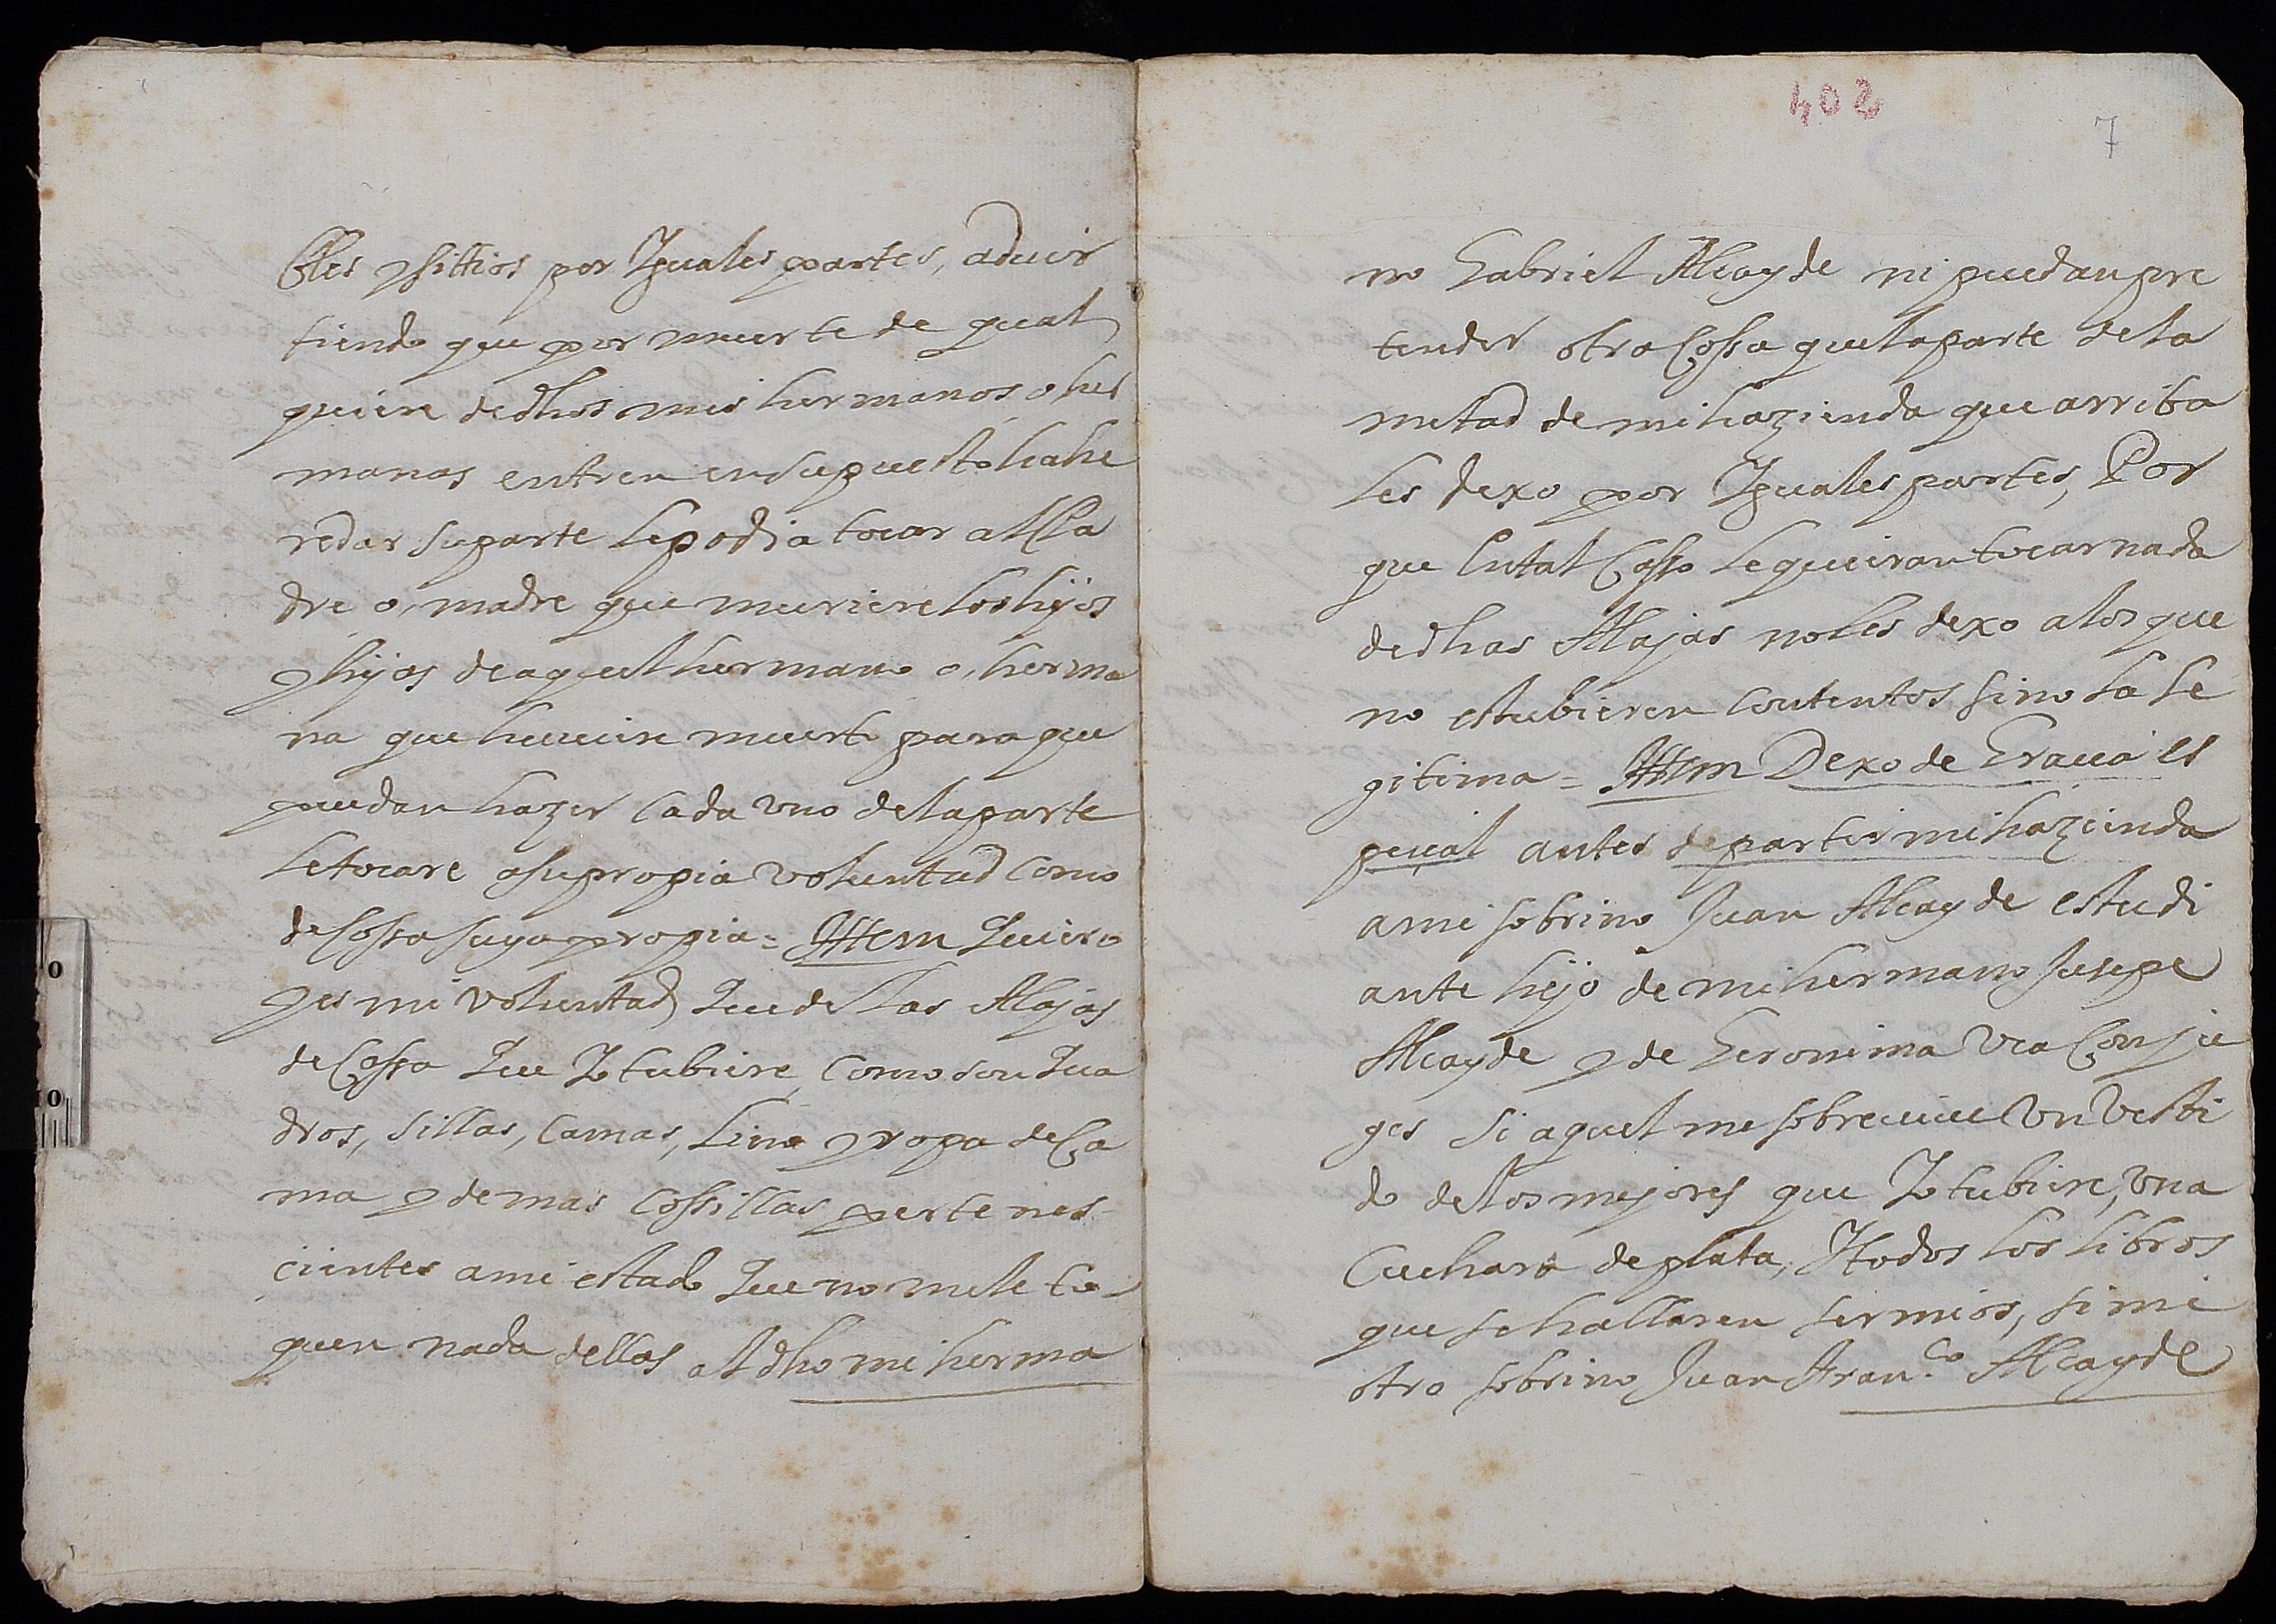 bles y sittios por Iguales partes, aduir
tiendo que por muerte de qual
quiere de dhos mis hermanos o her
manas entren en su puesto ha he
redar su parte le podia tocar al Pa
dre o, madre que muriere los hijos
y hijas de aquel hermano o, herma
na que huuiere muerto para que
puedan hazer cada vno de la parte
le tocare a su propia voluntad como
de Cossa suya propia = Ittem Quiero
y es mi voluntad Que de las Alajas
de Cassa Que Yo tubiere, como son Qua
dros, sillas, camas, lino y ropa de Ca
ma y demas cossillas pertenes-
cientes a mi estado Que no mele to-
quen nada dellas al dho mi herma
402
7
no Gabriel Alcayde ni puedan pre
tender otra Cossa que la parte de la
mitad de mi hazienda que arriba
les dexo por Iguales partes, Por
que en tal Casso le quieran tocar nada
de dhas Alajas no les dexo a los que
no estubieren contentos sino la le
gitima = Ittem Dexo de Gracia es
peçial antes de partir mi hazienda
a mi sobrino Juan Alcayde estudi
ante hijo de mi hermano Jusepe
Alcayde y de Geronima Vea Conju
ges si aquel me sobreviue Vn Vesti
do de los mejores que Yo tubiere, vna
Cuchara de plata, Y todos los libros
que se hallaren ser mios, si mi
otro sobrino Juan Fran.co Alcayde